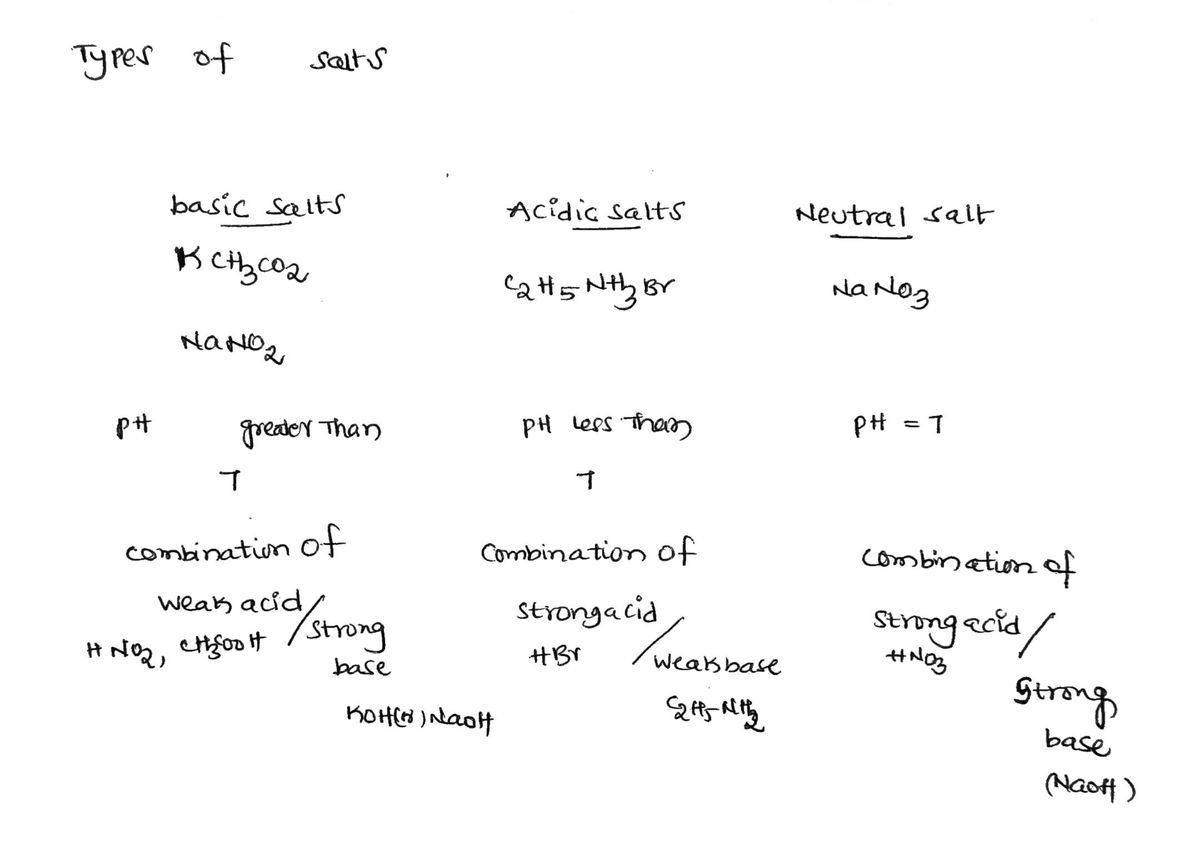 Types of salts
basic salts
KCH3CO2
NaNO2
pH greater Than
7
combination of
weak acid/
HNO2, CH3COOH
strong
base
KOH(or) NaOH
Acidic salts
C2H5NH3Br
pH less Than
7
Combination of
strong acid
HBr
/weak base
C2H5-NH2
Neutral salt
NaNO3
pH = 7
combination of
strong acid/
HNO3
Strong
base
(NaOH)